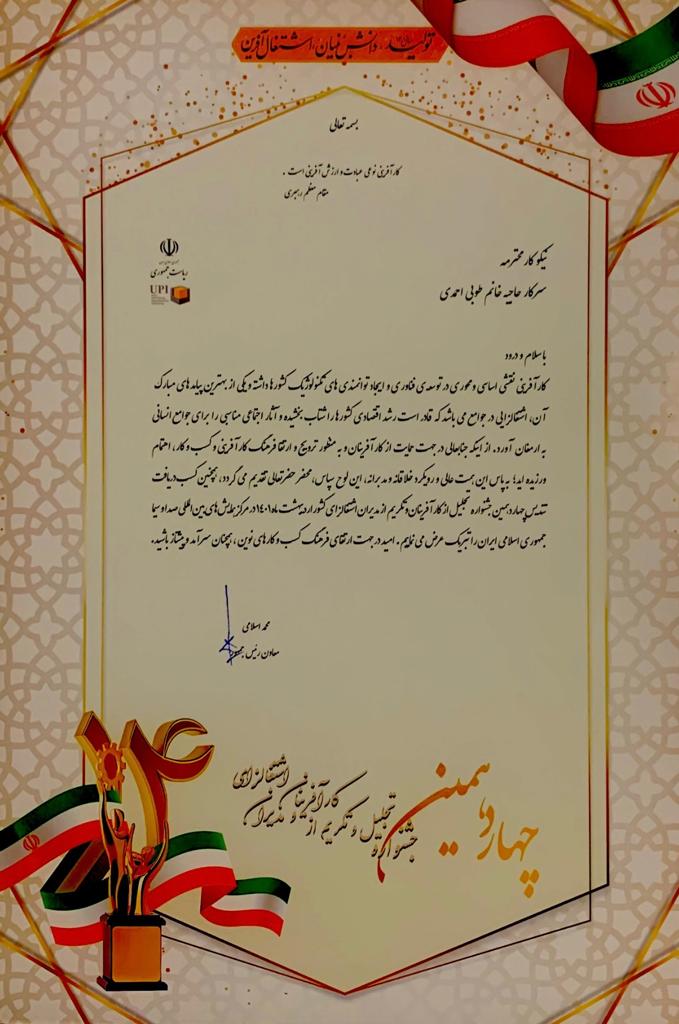 تولید، دانش بنیان، اشتغال آفرین
بسمه تعالی
کارآفرینی نوعی عبادت و ارزش آفرینی است .
مقام معظم رهبری
ریاست جمهوری
UPI
نیکوکار محترمه
سرکار حاجیه خانم طوبی احمدی
با سلام و درود
کارآفرینی نقشی اساسی و محوری در توسعه ی فناوری و ایجاد توانمندی های تکنولوژیک کشورها داشته و یکی از بهترین پیامدهای مبارک
آن، اشتغالزایی در جوامع می باشد که قادر است رشد اقتصادی کشورها را شتاب بخشیده و آثار اجتماعی مناسبی را برای جوامع انسانی
به ارمغان آورد. از اینکه جنابعالی در جهت حمایت از کارآفرینان و به منظور ترویج و ارتقا فرهنگ کارآفرینی و کسب و کار، اهتمام
ورزیده اید؛ به پاس این همت عالی و رویکرد خلاقانه و مدبرانه، این لوح سپاس، محضر حضرتعالی تقدیم می گردد، همچنین کسب دریافت
تندیس چهاردهمین جشنواره تجلیل از کارآفرینان و تکریم از مدیران اشتغالزای کشور اردیبهشت ماه ۱۴۰۱ در مرکز همایش های بین المللی صدا و سیما
جمهوری اسلامی ایران را تبریک عرض می نماییم. امید در جهت ارتقای فرهنگ کسب و کارهای نوین، همچنان سرآمد و پیشتاز باشید.
محمد اسلامی
معاون رئیس جمهور
۱۴
چهاردهمین
جشنواره
تجلیل و تکریم از
کارآفرینان و مدیران
اشتغالزای